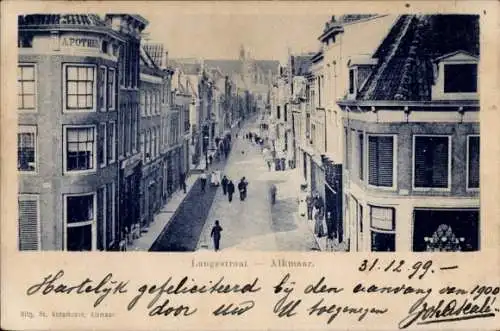 APOTHE
Langestraat — Alkmaar.
31.12.99.—
Hartelijk gefeliciteerd bij den aanvang van 1900
door uw U toegenegen
Uitg. St. Alkmaar.